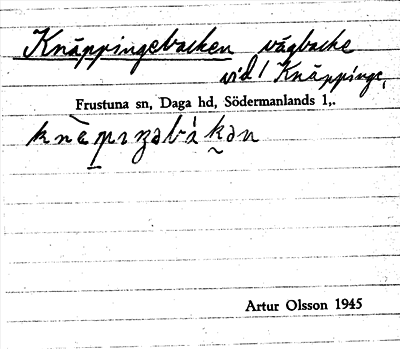 Knäppingebacken vägbacke
vid 1 Knäppinge,
Frustuna sn, Daga hd, Södermanlands l,.
knὲpıŋəbákən
Artur Olsson 1945